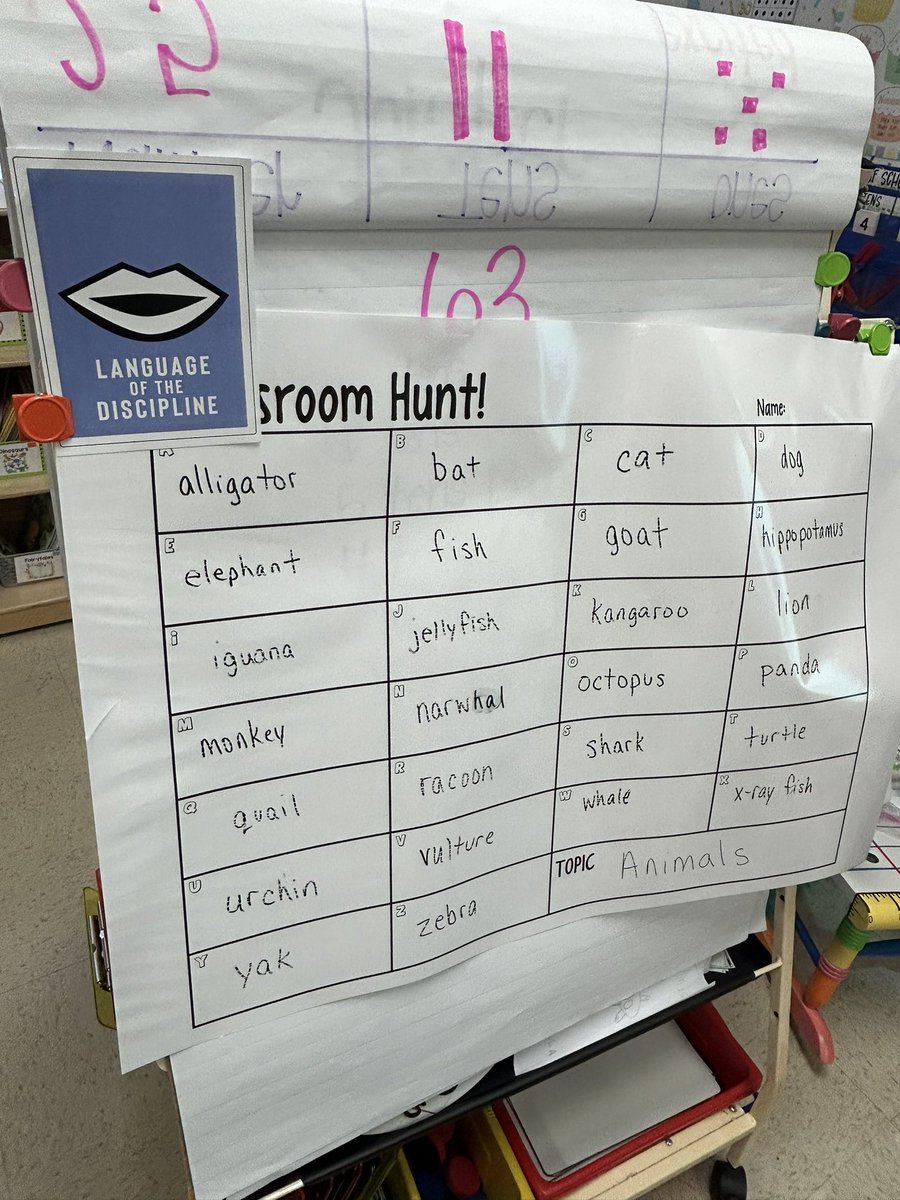 63
LANGUAGE
OF THE
DISCIPLINE
sroom Hunt!
Name:
A alligator B bat C cat D dog
E elephant F fish G goat H hippopotamus
I iguana J jellyfish K Kangaroo L lion
M monkey N narwhal O octopus P panda
Q quail R racoon S shark T turtle
U urchin V vulture W whale X x-ray fish
Y yak Z zebra TOPIC Animals
Dinosaurs
Fairytales
4